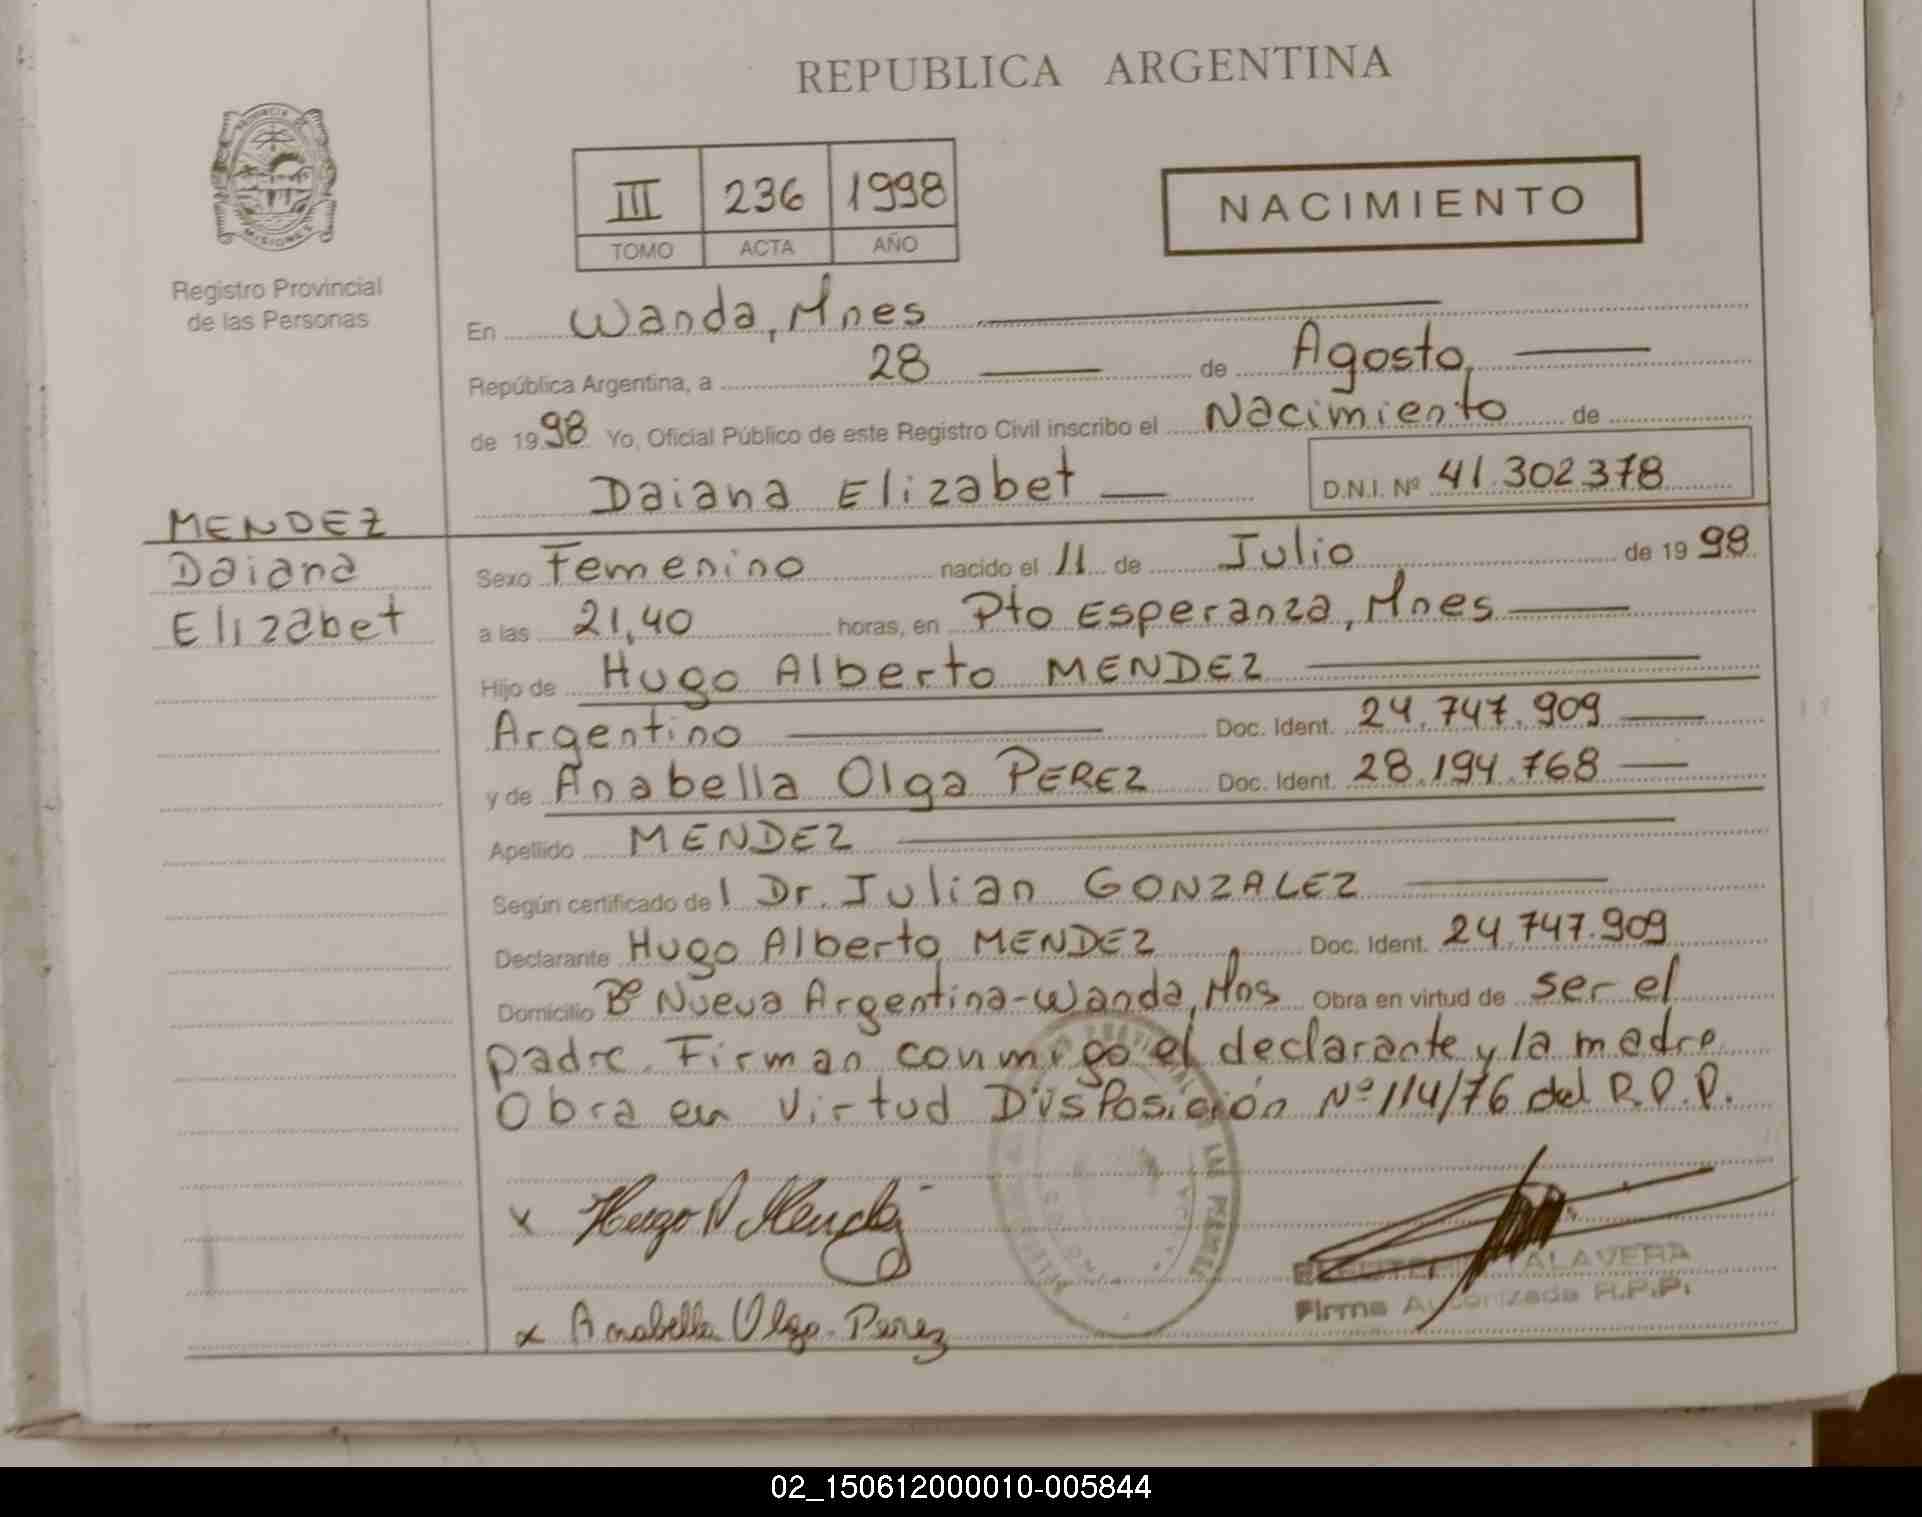 REPUBLICA ARGENTINA
PROVINCIA DE MISIONES
Registro Provincial
de las Personas
III 236 1998
TOMO ACTA AÑO
NACIMIENTO
En Wanda, Mnes
República Argentina, a 28 de Agosto
de 1998 Yo, Oficial Público de este Registro Civil inscribo el Nacimiento de
Daiana Elizabet D.N.I. Nº 41.302.378
MENDEZ
Daiana
Elizabet
Sexo Femenino nacido el 11 de Julio de 1998
a las 21,40 horas, en Pto Esperanza, Mnes
Hijo de Hugo Alberto MENDEZ
Argentino Doc. Ident. 24.747.909
y de Anabella Olga PEREZ Doc. Ident. 28.194.768
Apellido MENDEZ
Según certificado del Dr. Julian GONZALEZ
Declarante Hugo Alberto MENDEZ Doc. Ident. 24.747.909
Domicilio Bº Nueva Argentina-Wanda, Mns Obra en virtud de ser el
padre. Firman conmigo el declarante y la madre
Obra en virtud Disposición Nº 114/76 del R.P.P.
x Hugo A Mendez
x Anabella Olga Perez
TALAVERA
Firma Autorizada R.P.P.
02_150612000010-005844